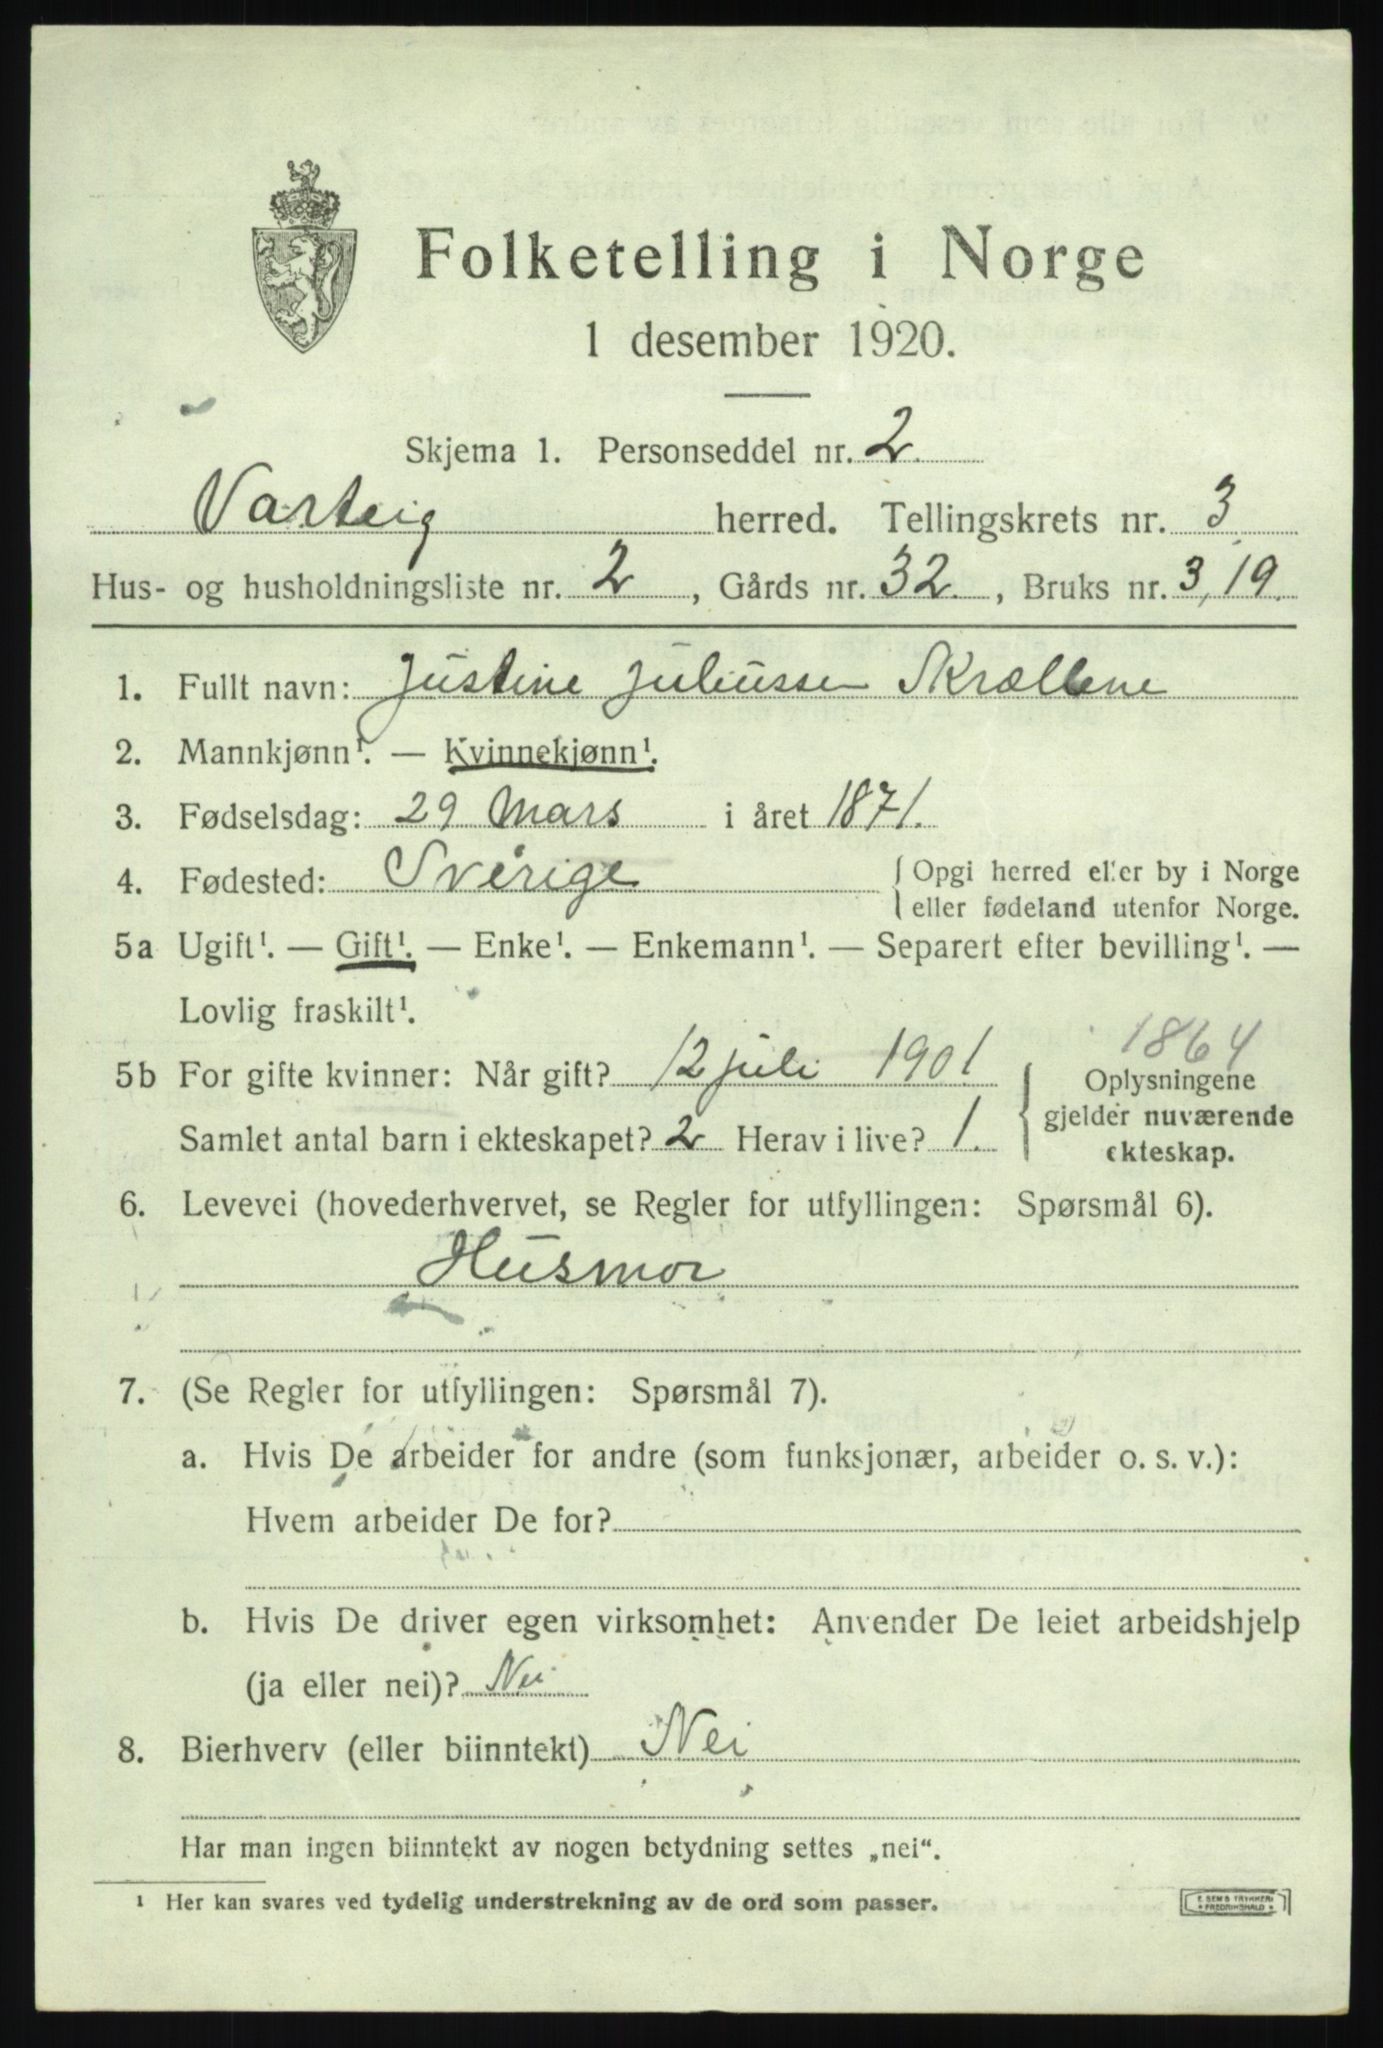 Folketelling i Norge
1 desember 1920.
Skjema 1. Personseddel nr. 2
Varteig herred. Tellingskrets nr. 3
Hus- og husholdningsliste nr. 2, Gårds nr. 32, Bruks nr. 3,19.
1. Fullt navn: Justine Juliussen Skrællene
2. Mannkjønn¹. — Kvinnekjønn¹.
3. Fødselsdag: 29 Mars i året 1871.
4. Fødested: Sverige { Opgi herred eller by i Norge
eller fødeland utenfor Norge.
5a Ugift¹. — Gift¹. — Enke¹. — Enkemann¹. — Separert efter bevilling¹. —
Lovlig fraskilt¹.
1864
5b For gifte kvinner: Når gift? 12 juli 1901 { Oplysningene
gjelder nuværende
Samlet antal barn i ekteskapet? 2 Herav i live? 1.
ekteskap.
6. Levevei (hovederhvervet, se Regler for utfyllingen: Spørsmål 6).
Husmor
7. (Se Regler for utfyllingen: Spørsmål 7).
a. Hvis De arbeider for andre (som funksjonær, arbeider o. s. v.):
Hvem arbeider De for?
b. Hvis De driver egen virksomhet: Anvender De leiet arbeidshjelp
(ja eller nei)? Nei
8. Bierhverv (eller biinntekt) Nei
Har man ingen biinntekt av nogen betydning settes „nei“.
¹ Her kan svares ved tydelig understrekning av de ord som passer.
E. SEMS TRYKKERI
FREDRIKSHALD